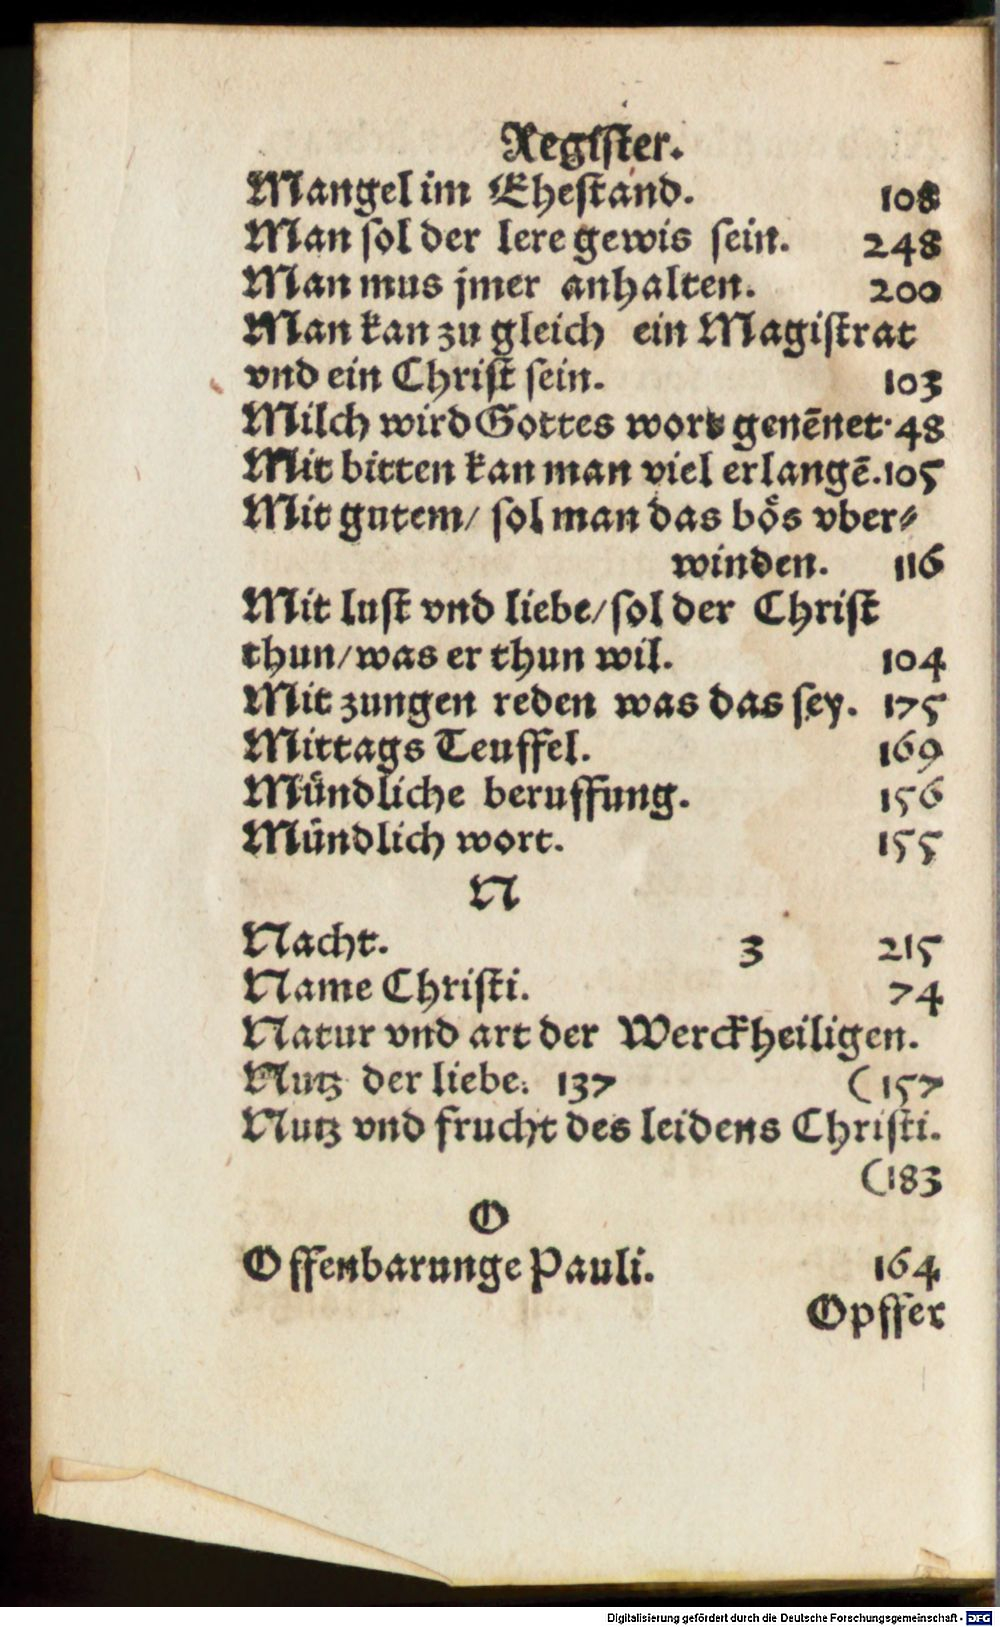 Register.
Mangel im Ehestand. 108
Man sol der lere gewis sein. 248
Man mus jmer anhalten. 200
Man kan zu gleich ein Magistrat
vnd ein Christ sein. 103
Milch wird Gottes wort genēnet. 48
Mit bitten kan man viel erlangē. 105
Mit gutem/ sol man das bös vber⸗
winden. 116
Mit lust vnd liebe/ sol der Christ
thun/ was er thun wil. 104
Mit zungen reden was das sey. 175
Mittags Teuffel. 169
Mündliche beruffung. 156
Mündlich wort. 155
N
Nacht. 3 215
Name Christi. 74
Natur vnd art der Werckheiligen.
Nutz der liebe. 137 (157
Nutz vnd frucht des leidens Christi.
(183
O
Offenbarunge Pauli. 164
Opffer
Digitalisierung gefördert durch die Deutsche Forschungsgemeinschaft - DFG